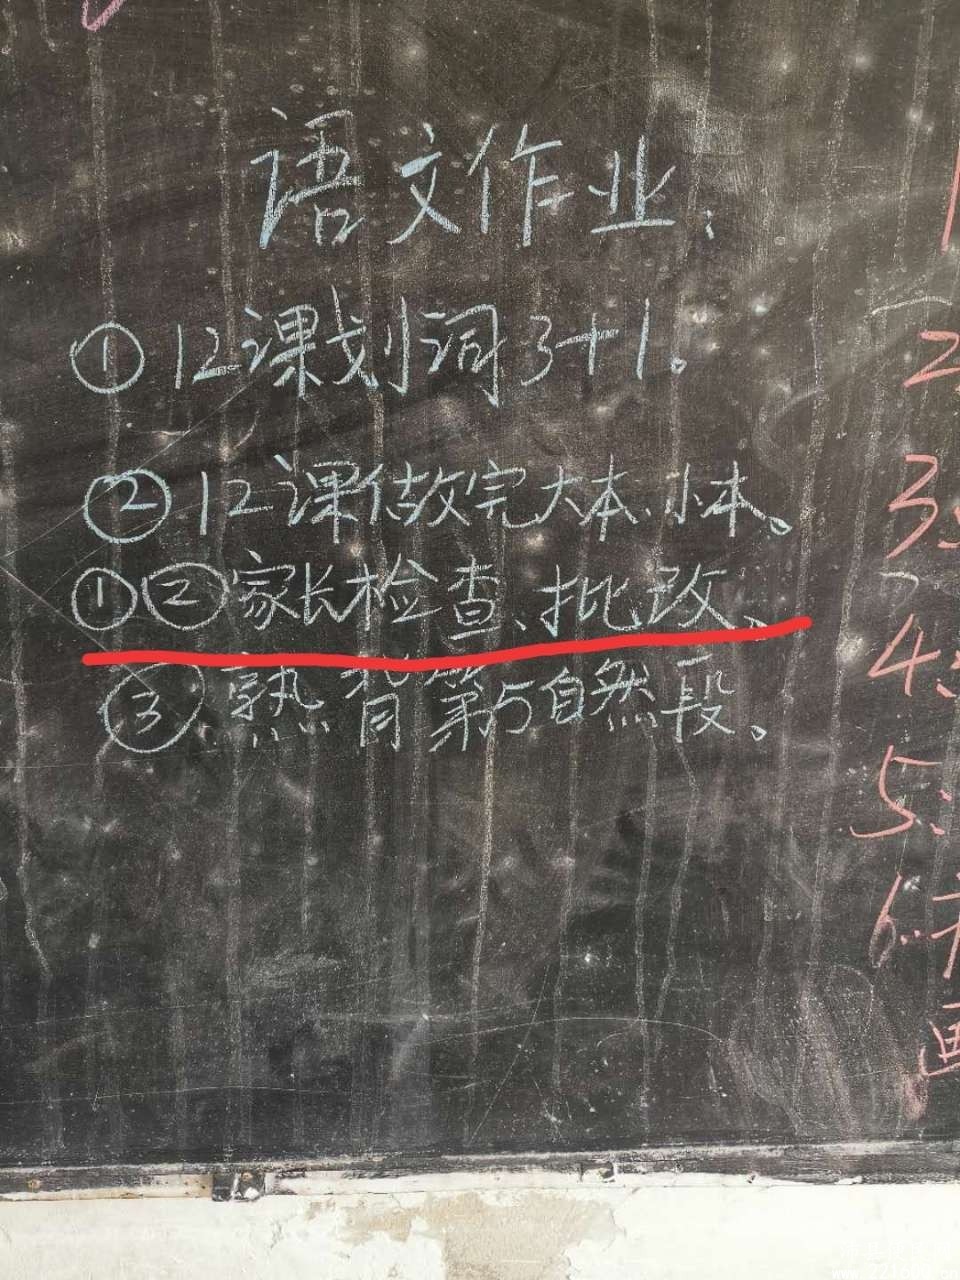 语文作业：
①12课划词3+1。
②12课做完大本、小本。
①②家长检查、批改。
③熟背第5自然段。
2
3.
4:
5:
6.
画